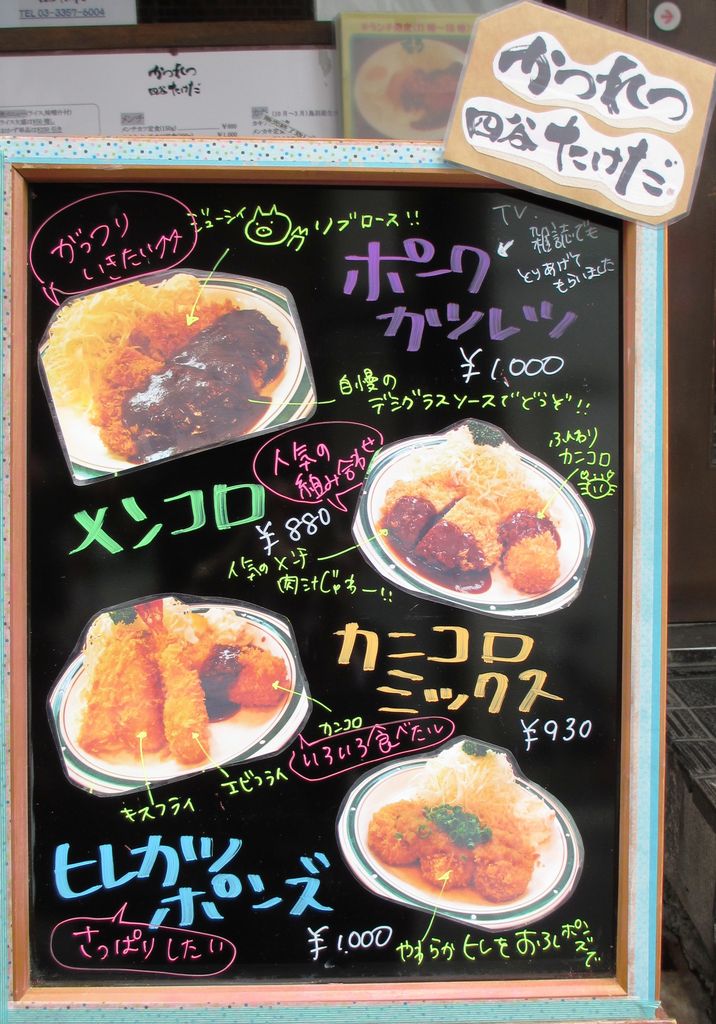 TEL 03-3357-6004
かつれつ
四谷たけだ
かつれつ
四谷 たけだ
がっつり
いきたい
ジューシィ リブロース!!
TV.
雑誌でも
とりあげて
もらいました
ポーク
カツレツ
¥1,000
自慢の
デミグラスソースでどうぞ!!
人気の
組み合わせ
ふんわり
カニコロ
メンコロ
¥880
人気のメンチ
肉汁じゅわー!!
カニコロ
ミックス
¥930
カニコロ
いろいろ食べたい
エビフライ
キスフライ
ヒレカツ
ポンズ
さっぱりしたい
¥1,000
やわらかヒレをおろしポンズで